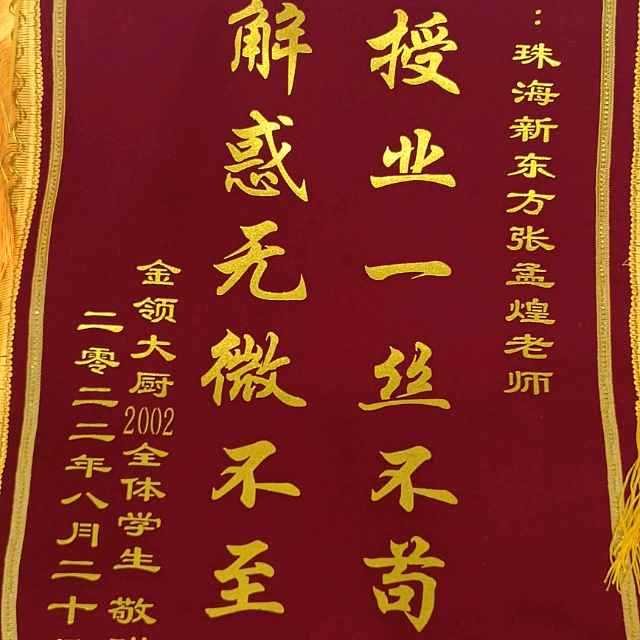 ：珠海新东方张孟煌老师
授业一丝不苟
解惑无微不至
金领大厨2002全体学生 敬
二零二二年八月二十